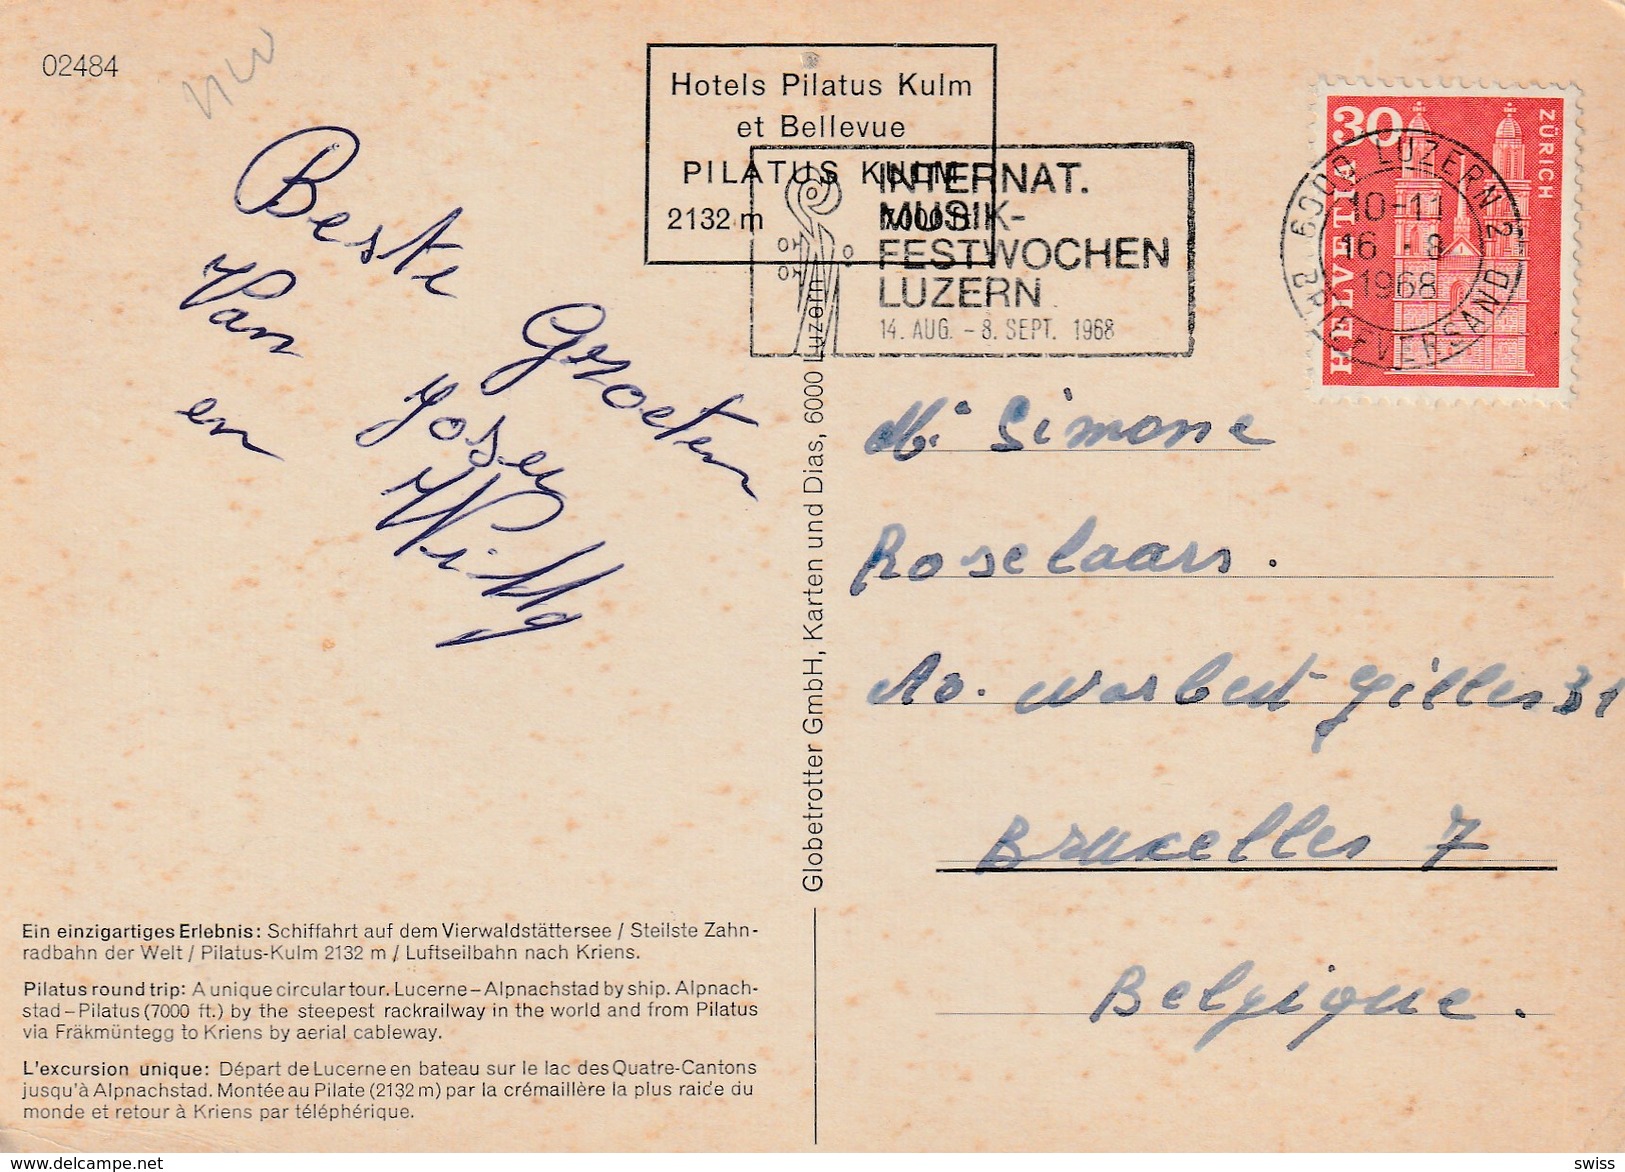 02484
Hotels Pilatus Kulm
et Bellevue
PILATUS KULM
2132 m 7000 ft
INTERNAT.
MUSIK-
FESTWOCHEN
LUZERN
14. AUG. - 8. SEPT. 1968
6000 LUZERN 2
10-11
16 - 8
1968
BRIEFVERSAND
30
ZÜRICH
HELVETIA
Beste Groeten
Van Josey
en Willy
Simone
Roselaars.
Av. Norbert Gilles 31
Bruxelles 7
Belgique.
Globetrotter GmbH, Karten und Dias, 6000 Luzern
Ein einzigartiges Erlebnis: Schiffahrt auf dem Vierwaldstättersee / Steilste Zahn-
radbahn der Welt / Pilatus-Kulm 2132 m / Luftseilbahn nach Kriens.
Pilatus round trip: A unique circular tour. Lucerne – Alpnachstad by ship. Alpnach-
stad – Pilatus (7000 ft.) by the steepest rackrailway in the world and from Pilatus
via Fräkmüntegg to Kriens by aerial cableway.
L'excursion unique: Départ de Lucerne en bateau sur le lac des Quatre-Cantons
jusqu'à Alpnachstad. Montée au Pilate (2132 m) par la crémaillère la plus raide du
monde et retour à Kriens par téléphérique.
https://www.delcampe.net
swiss